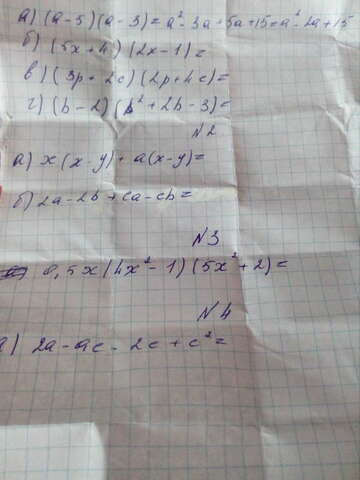 а) (a-5)(a-3)=a²-3a-5a+15=a²-2a+15
б) (5x+4)(2x-1)=
в) (3p+2c)(2p+4c)=
г) (b-2)(b²+2b-3)=
N2
а) x(x-y)+a(x-y)=
б) 2a-2b+ca-cb=
N3
0,5x(4x²-1)(5x²+2)=
N4
а) 2a-ac-2c+c²=